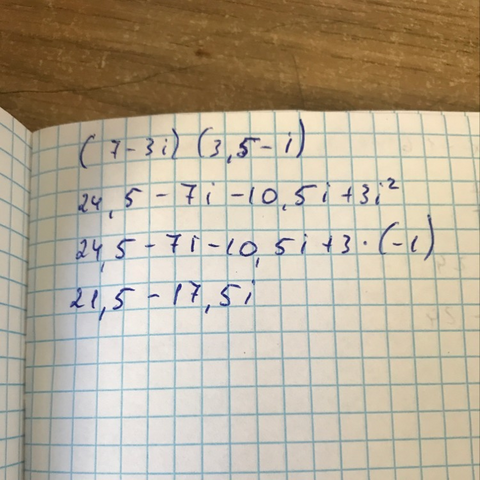 (7-3i) (3,5-i)
24,5-7i-10,5i+3i²
24,5-7i-10,5i+3·(-1)
21,5-17,5i